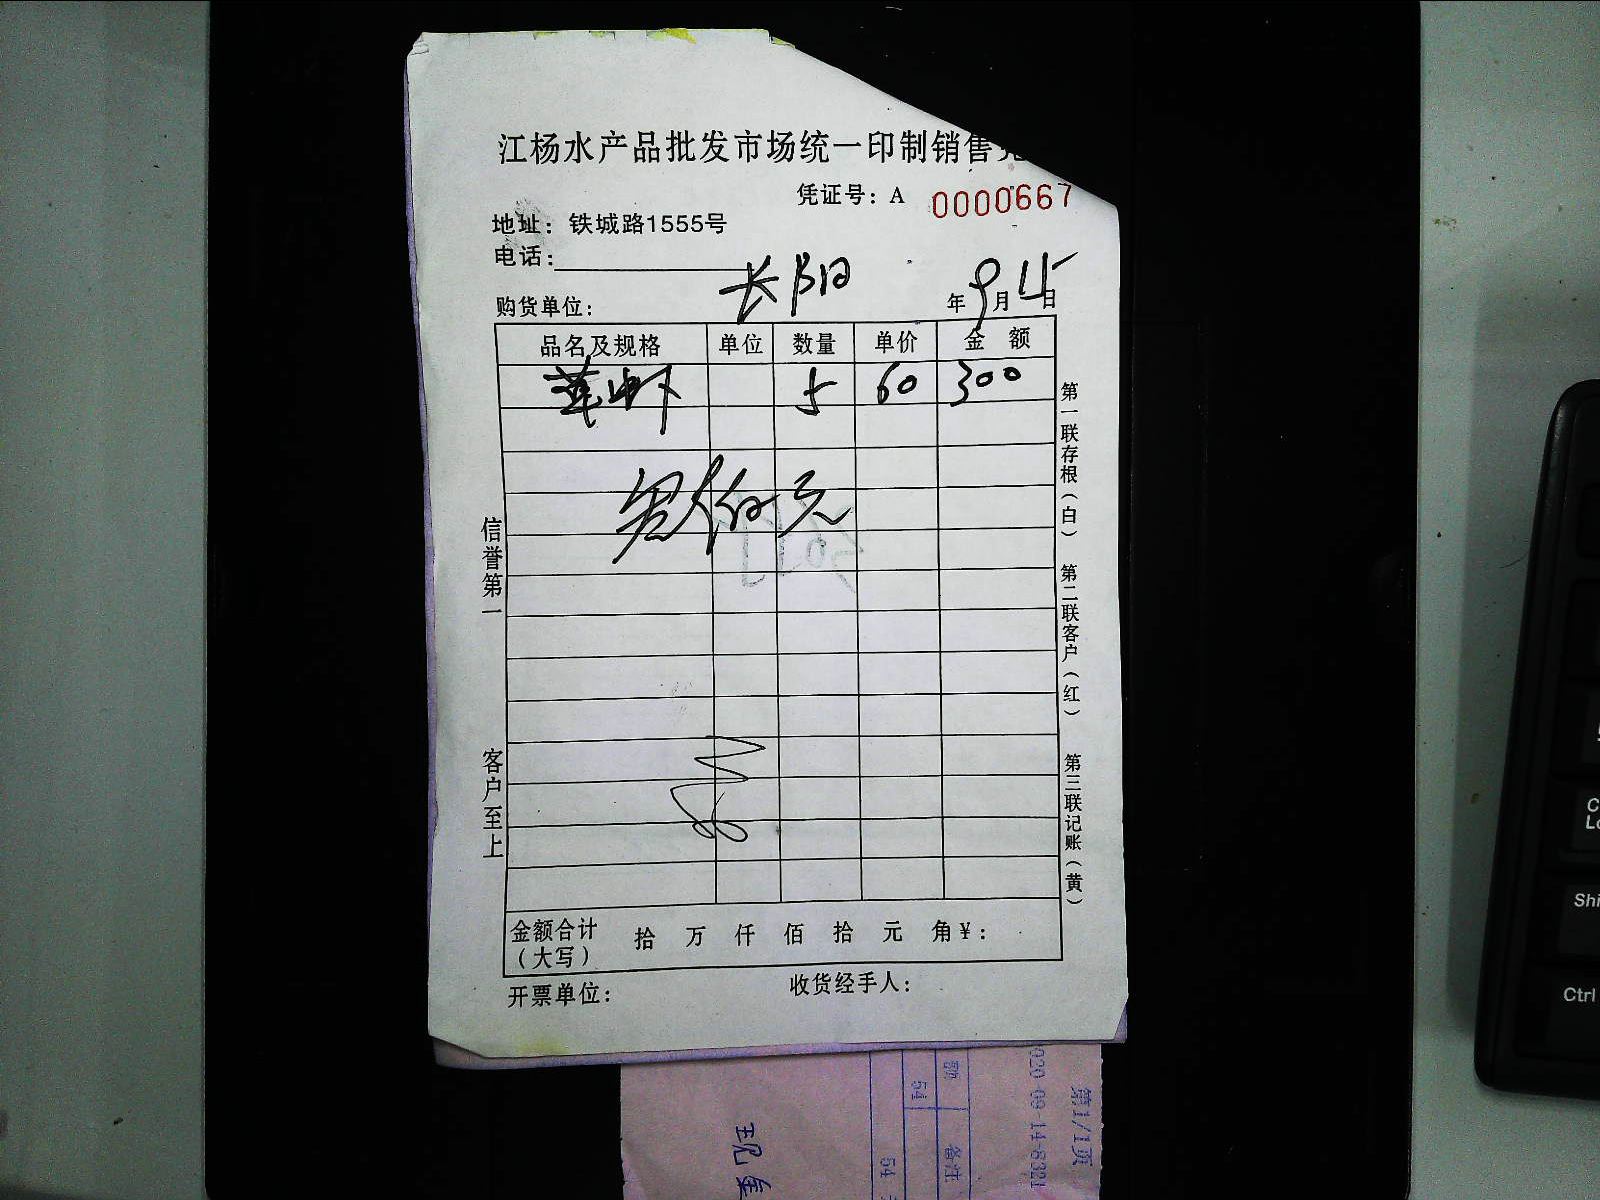 江杨水产品批发市场统一印制销售凭
凭证号：A 0000667
地址：铁城路1555号
电话：
长阳
购货单位：
年9月15日
品名及规格 单位 数量 单价 金额
草虾 5 60 300
叁佰元
信誉第一
客户至上
第一联存根（白）
第二联客户（红）
第三联记账（黄）
金额合计（大写） 拾 万 仟 佰 拾 元 角 ¥：
开票单位： 收货经手人：
第1/1页
额
54
备注
54
现金
Shi
Ctrl